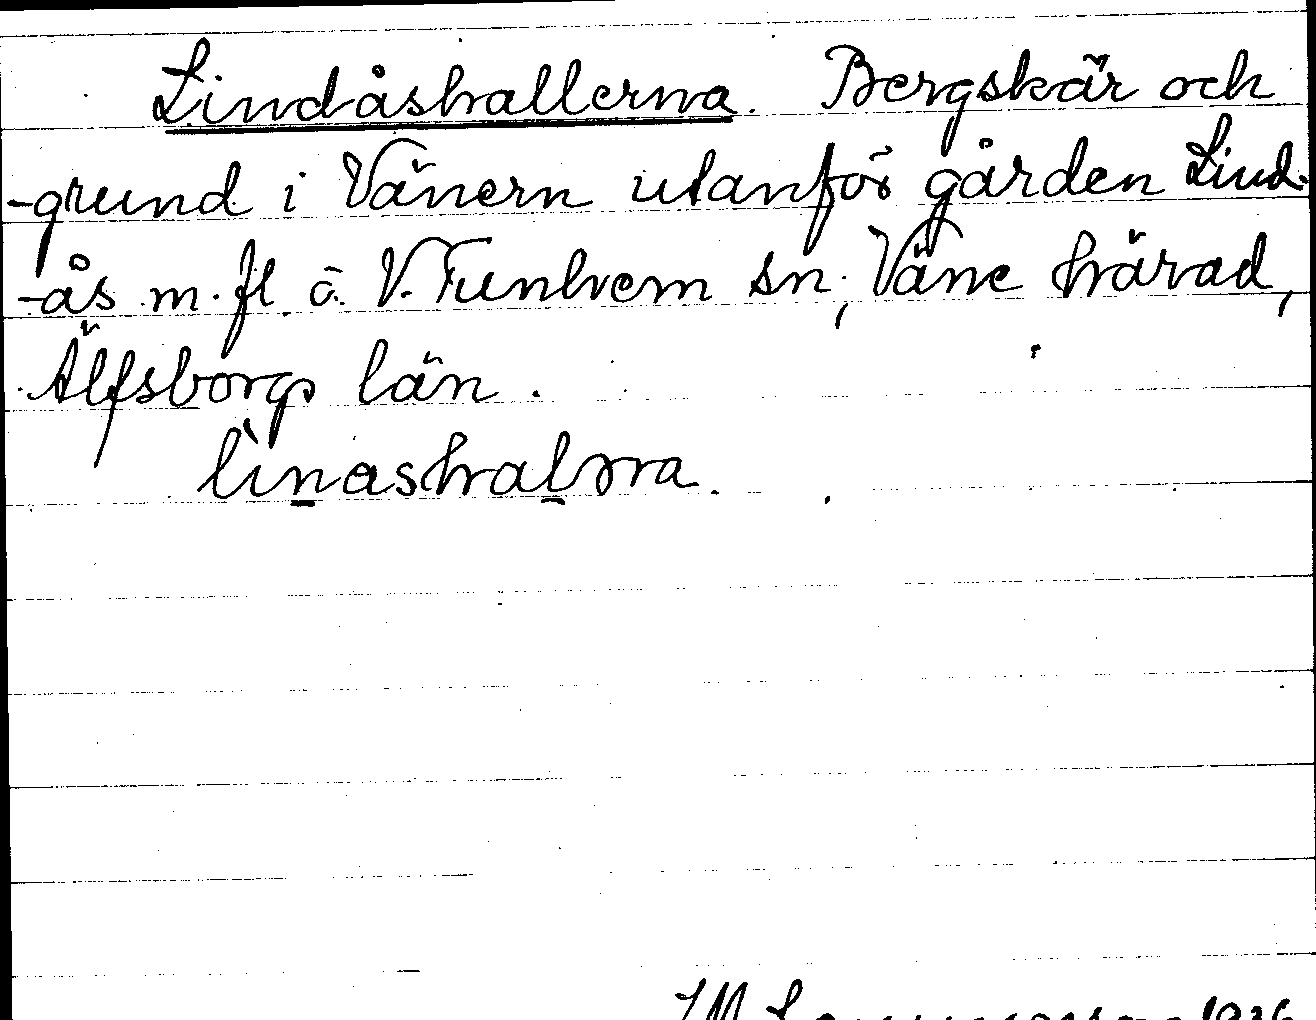 Lindåshallerna. Bergskär och
-grund i Vänern utanför gården Lind-
-ås m. fl. å V. Tunhem sn, Väne härad,
Älfsborgs län.
linashalṇa.
1936